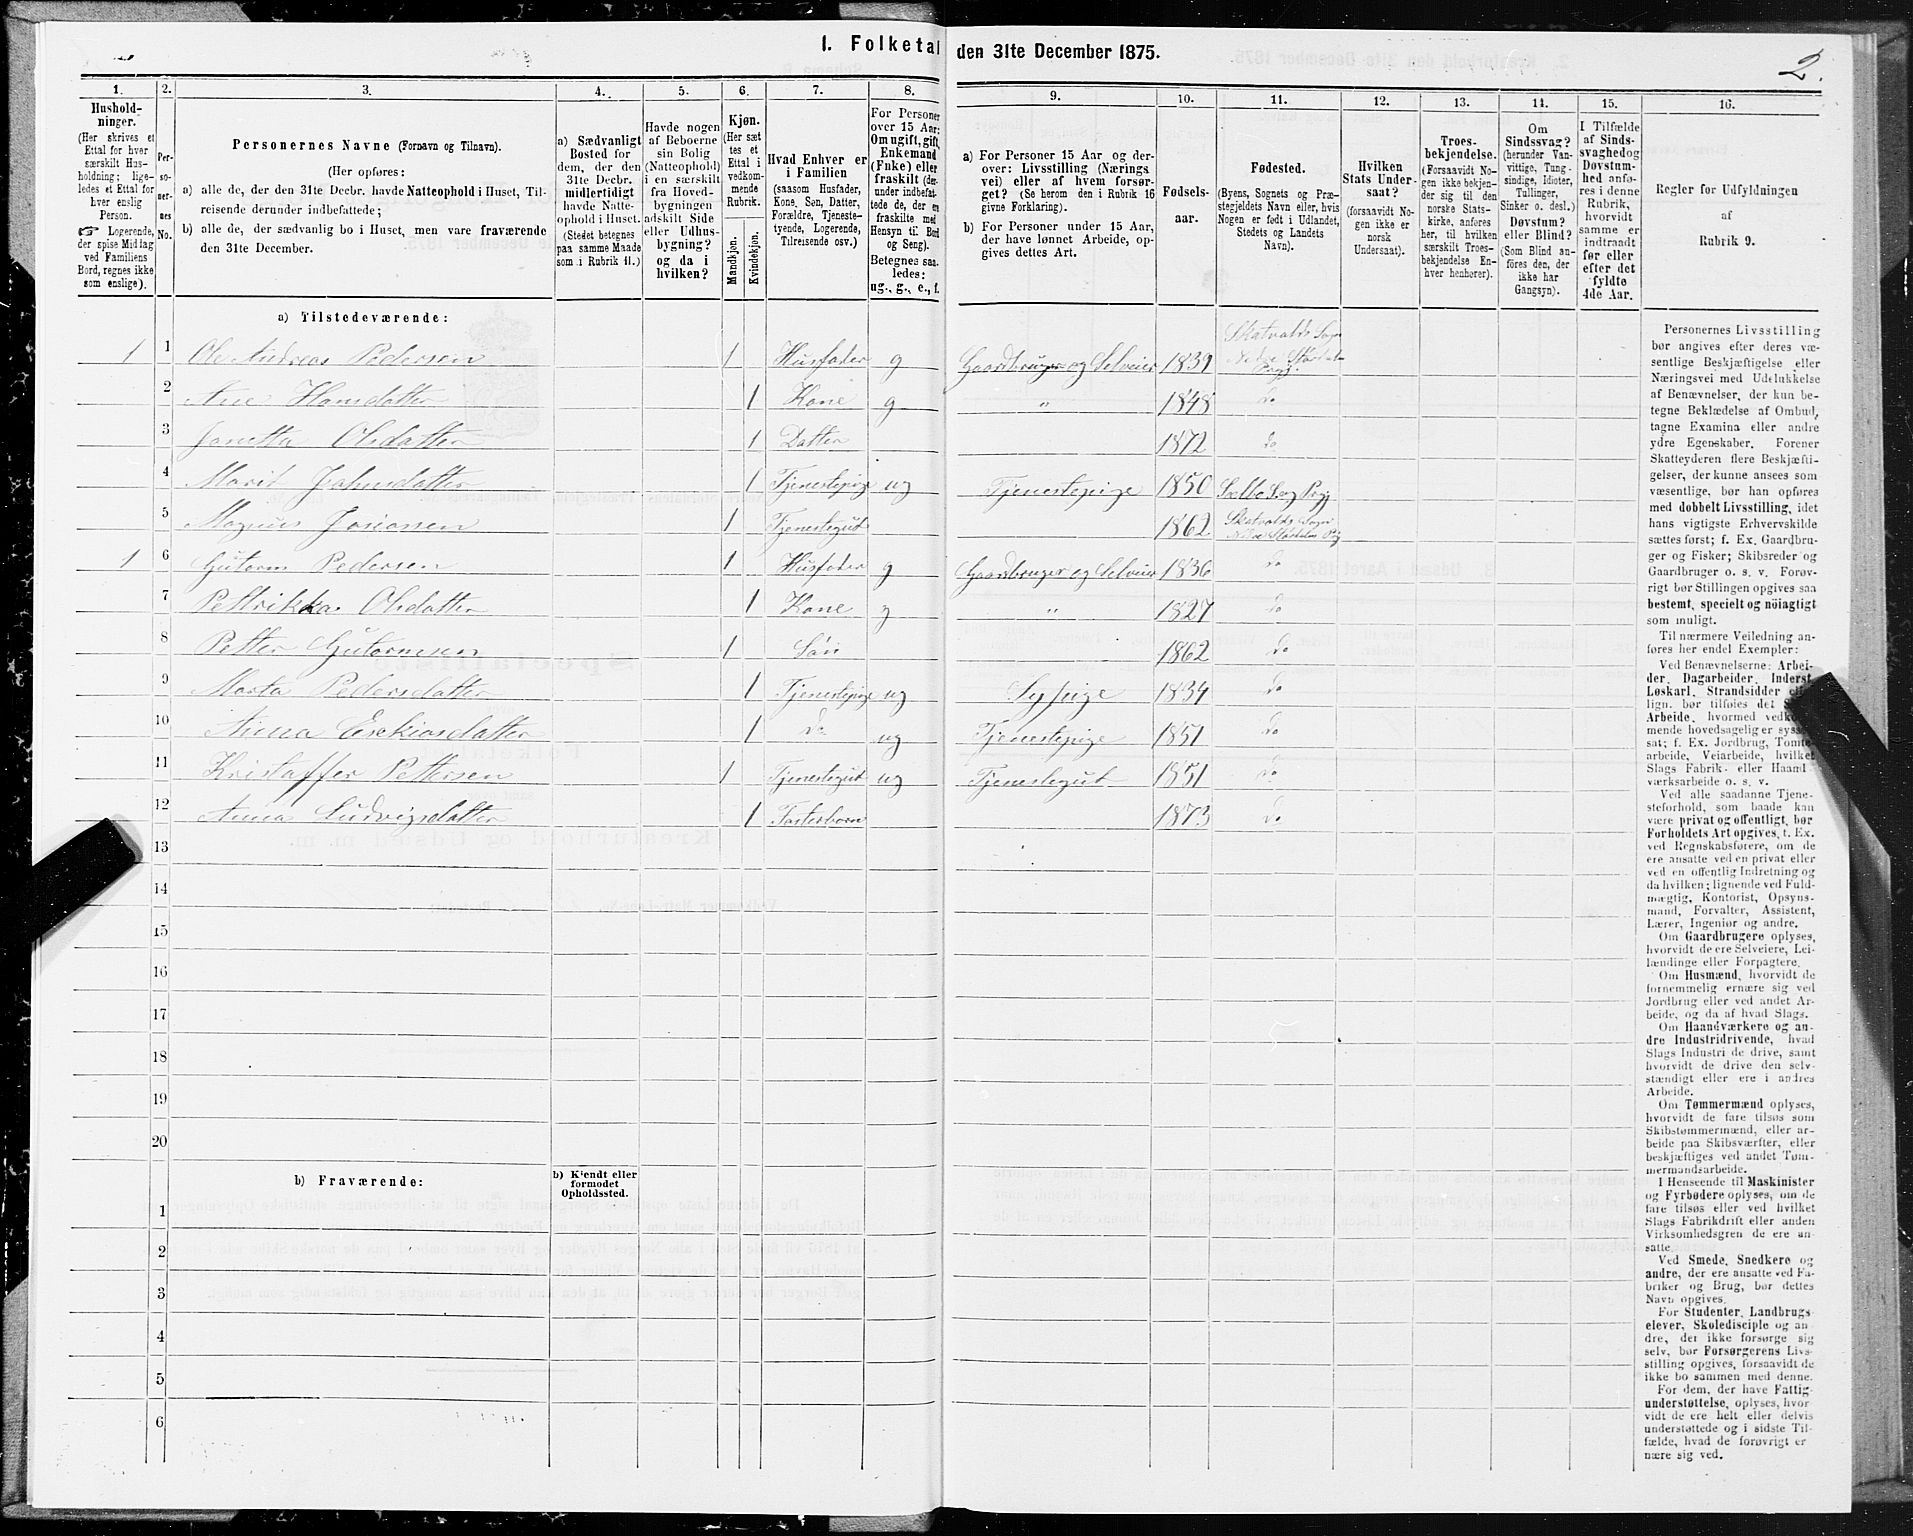 1. Folketal den 31te December 1875.
2.
1. 2. 3. 4. 5. 6. 7. 8. 9. 10. 11. 12. 13. 14. 15. 16.
Hushold-
ninger.
(Her skrives et
Ettal for hver
særskilt Hus-
holdning; lige-
ledes et Ettal for
hver enslig
Person.
☞ Logerende,
der spise Middag
ved Familiens
Bord, regnes ikke
som enslige).
Per-
so-
ner-
nes
No.
Personernes Navne (Fornavn og Tilnavn).
(Her opføres:
a) alle de, der den 31te Decbr. havde Natteophold i Huset, Til-
reisende derunder indbefattede;
b) alle de, der sædvanlig bo i Huset, men vare fraværende
den 31te December.
a) Sædvanligt
Bosted for
dem, der den
31te Decbr.
midlertidigt
havde Natte-
ophold i Huset.
(Stedet betegnes
paa samme Maade
som i Rubrik 11.)
Havde nogen
af Beboerne
sin Bolig
(Natteophold)
i en særskilt
fra Hoved-
bygningen
adskilt Side
eller Udhus-
bygning?
og da i
hvilken?
Kjøn.
(Her sæt
tes et
Ettal i
vedkom-
mende
Rubrik.
Mandkjøn.
Kvindekjøn.
Hvad Enhver er
i Familien
(saasom Husfader,
Kone, Søn, Datter,
Forældre, Tjeneste-
tyende, Logerende,
Tilreisende osv.)
For Personer
over 15 Aar:
Om ugift, gift,
Enkemand
(Enke) eller
fraskilt (der-
under indbefat-
tede de, der ere
fraskilte med
Hensyn til Bord
og Seng).
Betegnes saa-
ledes:
ug., g., e., f.
a) For Personer 15 Aar og der-
over: Livsstilling (Nærings
vei) eller af hvem forsør-
get? (Se herom den i Rubrik 16
givne Forklaring).
b) For Personer under 15 Aar,
der have lønnet Arbeide, op-
gives dettes Art.
Fødsels-
aar.
Fødested.
(Byens, Sognets og Præ-
stegjeldets Navn eller, hvis
Nogen er født i Udlandet,
Stedets og Landets
Navn).
Hvilken
Stats Under-
saat?
(forsaavidt No-
gen ikke er
norsk
Undersaat).
Troes-
bekjendelse.
(Forsaavidt No-
gen ikke bekjen-
der sig til den
norske Stats-
kirke, anføres
her, til hvilken
særskilt Troes-
bekjendelse En-
hver henhører).
Om
Sindssvag?
(herunder Van-
vittige, Tung-
sindige, Idioter,
Tullinger,
Sinker o. desl.)
Døvstum?
eller Blind?
(Som Blind an-
føres den, der
ikke har
Gangsyn).
I Tilfælde
af Sinds-
svaghed og
Døvstum-
hed anfø-
res i denne
Rubrik,
hvorvidt
samme er
indtraadt
før eller
efter det
fyldte
4de Aar.
Regler for Udfyldningen
af
Rubrik 9.
a) Tilstedeværende:
1 1 Ole Andreas Pedersen 1 Husfader g Gaardbruger og Selveier 1839 Skatvolds Sogn
Nedre Størdalens
Prgj.
2 Ane Hansdatter 1 Kone g " 1848 do
3 Janetta Olsdatter 1 Datter 1872 do
4 Marit Johnsdatter 1 Tjenestepige ug Tjenestepige 1850 Selbo Sog Prgj
5 Magnus 1 Tjenestegut 1862 Skatvolds Sogn
Nedre Størdalens Prgj
1 6 Gutorm Pedersen 1 Husfader g Gaardbruger og Selveier 1836 do
7 Pettrikka Olsdatter 1 Kone g " 1827 do
8 Petter Gutormsen 1 Søn 1862 do
9 Marta Pedersdatter 1 Tjenestepige ug Sypige 1834 do
10 Anna Esekiasdatter 1 do ug Tjenestepige 1851 do
11 Kristaffer Pettersen 1 Tjenestegut ug Tjenestegut 1851 do
12 Anna Ludvigsdatter 1 Fosterbarn 1873 do
13
14
15
16
17
18
19
20
b) Fraværende:
b) Kjendt eller
formodet
Opholdssted.
1
2
3
4
5
6
Personernes Livsstilling
bør angives efter deres væ-
sentlige Beskjæftigelse eller
Næringsvei med Udelukkelse
af Benævnelser, der kun be-
tegne Beklædelse af Ombud,
tagne Examina eller andre
ydre Egenskaber. Forener
Skatteyderen flere Beskjæfti-
gelser, der kunne ansees som
væsentlige, bør han opføres
med dobbelt Livsstilling, idet
hans vigtigste Erhvervskilde
sættes først; f. Ex. Gaardbru-
ger og Fisker; Skibsreder og
Gaardbruger o. s. v. Forøv-
rigt bør Stillingen opgives saa
bestemt, specielt og nøiagtigt
som muligt.
Til nærmere Veiledning an-
føres her endel Exempler:
Ved Benævnelserne: Arbei-
der, Dagarbeider, Inderst,
Løskarl, Strandsidder eller
lign. bør tilføies det Slags
Arbeide, hvormed vedkom-
mende hovedsagelig er syssel-
sat; f. Ex. Jordbrug, Tomte-
arbeide, Veiarbeide, hvilket
Slags Fabrik- eller Haand-
værksarbeide o. s. v.
Ved alle saadanne Tjene-
steforhold, som baade kan
være privat og offentligt, bør
Forholdets Art opgives, t. Ex.
ved Regnskabsførere, om de
ere ansatte ved en privat eller
ved en offentlig Indretning og
da hvilken; lignende ved Fuld-
mægtig, Kontorist, Opsyns-
mand, Forvalter, Assistent,
Lærer, Ingeniør og andre.
Om Gaardbrugere oplyses,
hvorvidt de ere Selveiere, Lei-
lændinge eller Forpagtere.
Om Husmænd, hvorvidt de
fornemmelig ernære sig ved
Jordbrug eller ved andet Ar-
beide, og da af hvad Slags.
Om Haandværkere og an-
dre Industridrivende, hvad
Slags Industri de drive, samt
hvorvidt de drive den selv-
stændigt eller ere i andres
Arbeide.
Om Tømmermænd oplyses,
hvorvidt de fare tilsøs som
Skibstømmermænd, eller ar-
beide paa Skibsværfter, eller
beskjæftiges ved andet Tøm-
mermandsarbeide.
I Henseende til Maskinister
og Fyrbødere oplyses, om de
fare tilsøs eller ved hvilket
Slags Fabrikdrift eller anden
Virksomhedsgren de ere an-
satte.
Ved Smede, Snedkere og
andre, der ere ansatte ved Fa-
briker og Brug, bør dettes
Navn opgives.
For Studenter, Landbrugs-
elever, Skoledisciple og an
dre, der ikke forsørge sig
selv, bør Forsørgerens Livs-
stilling opgives, forsaavidt de
ikke bo sammen med denne.
For dem, der have Fattig-
understøttelse, oplyses, hvor-
vidt de ere helt eller delvis
understøttede og i sidste Til-
fælde, hvad de forøvrigt er
nære sig ved.